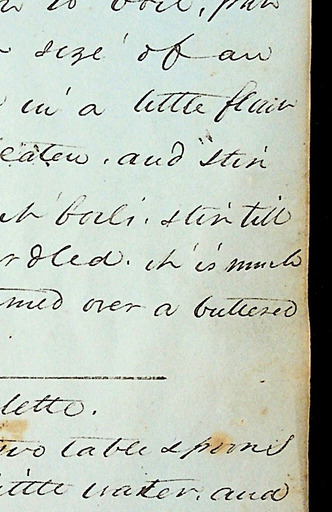 to boil, put
size of an
in a little flour
eaten. and stir
it boils. stir till
rdled. it is much
med over a buttered
lette.
two table spoons
little water. and